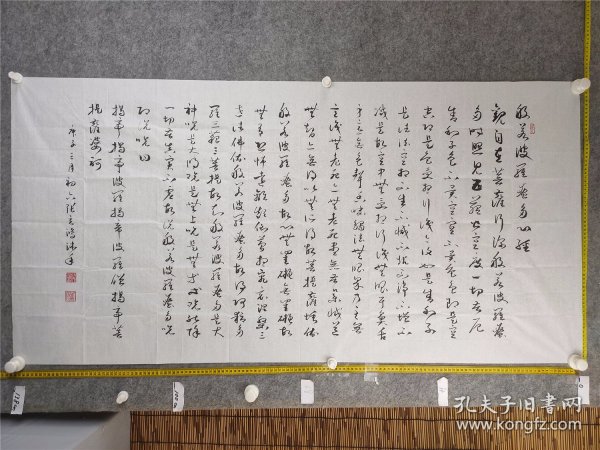 般若波羅蜜多心經
觀自在菩薩行深般若波羅蜜
多時照見五蘊皆空度一切苦厄
舍利子色不異空空不異色色即是空
空即是色受想行識亦復如是舍利子
是諸法空相不生不滅不垢不淨不增不
減是故空中無色受想行識無眼耳鼻舌
身意無色聲香味觸法無眼界乃至無
意識無老死亦無老死盡無苦集滅道
無智亦無得以無所得故菩提薩埵依
般若波羅蜜多故心無罣礙無罣礙故
無有恐怖遠離顛倒夢想究竟涅槃三
世諸佛依般若波羅蜜多故得阿耨多
羅三藐三菩提故知般若波羅蜜多是大
神咒是大明咒是無上咒是無等等咒能除
一切苦真實不虛故說般若波羅蜜多咒
即說咒曰
揭帝揭帝波羅揭帝波羅僧揭帝菩
提薩婆訶
庚子三月初六張
孔夫子旧书网